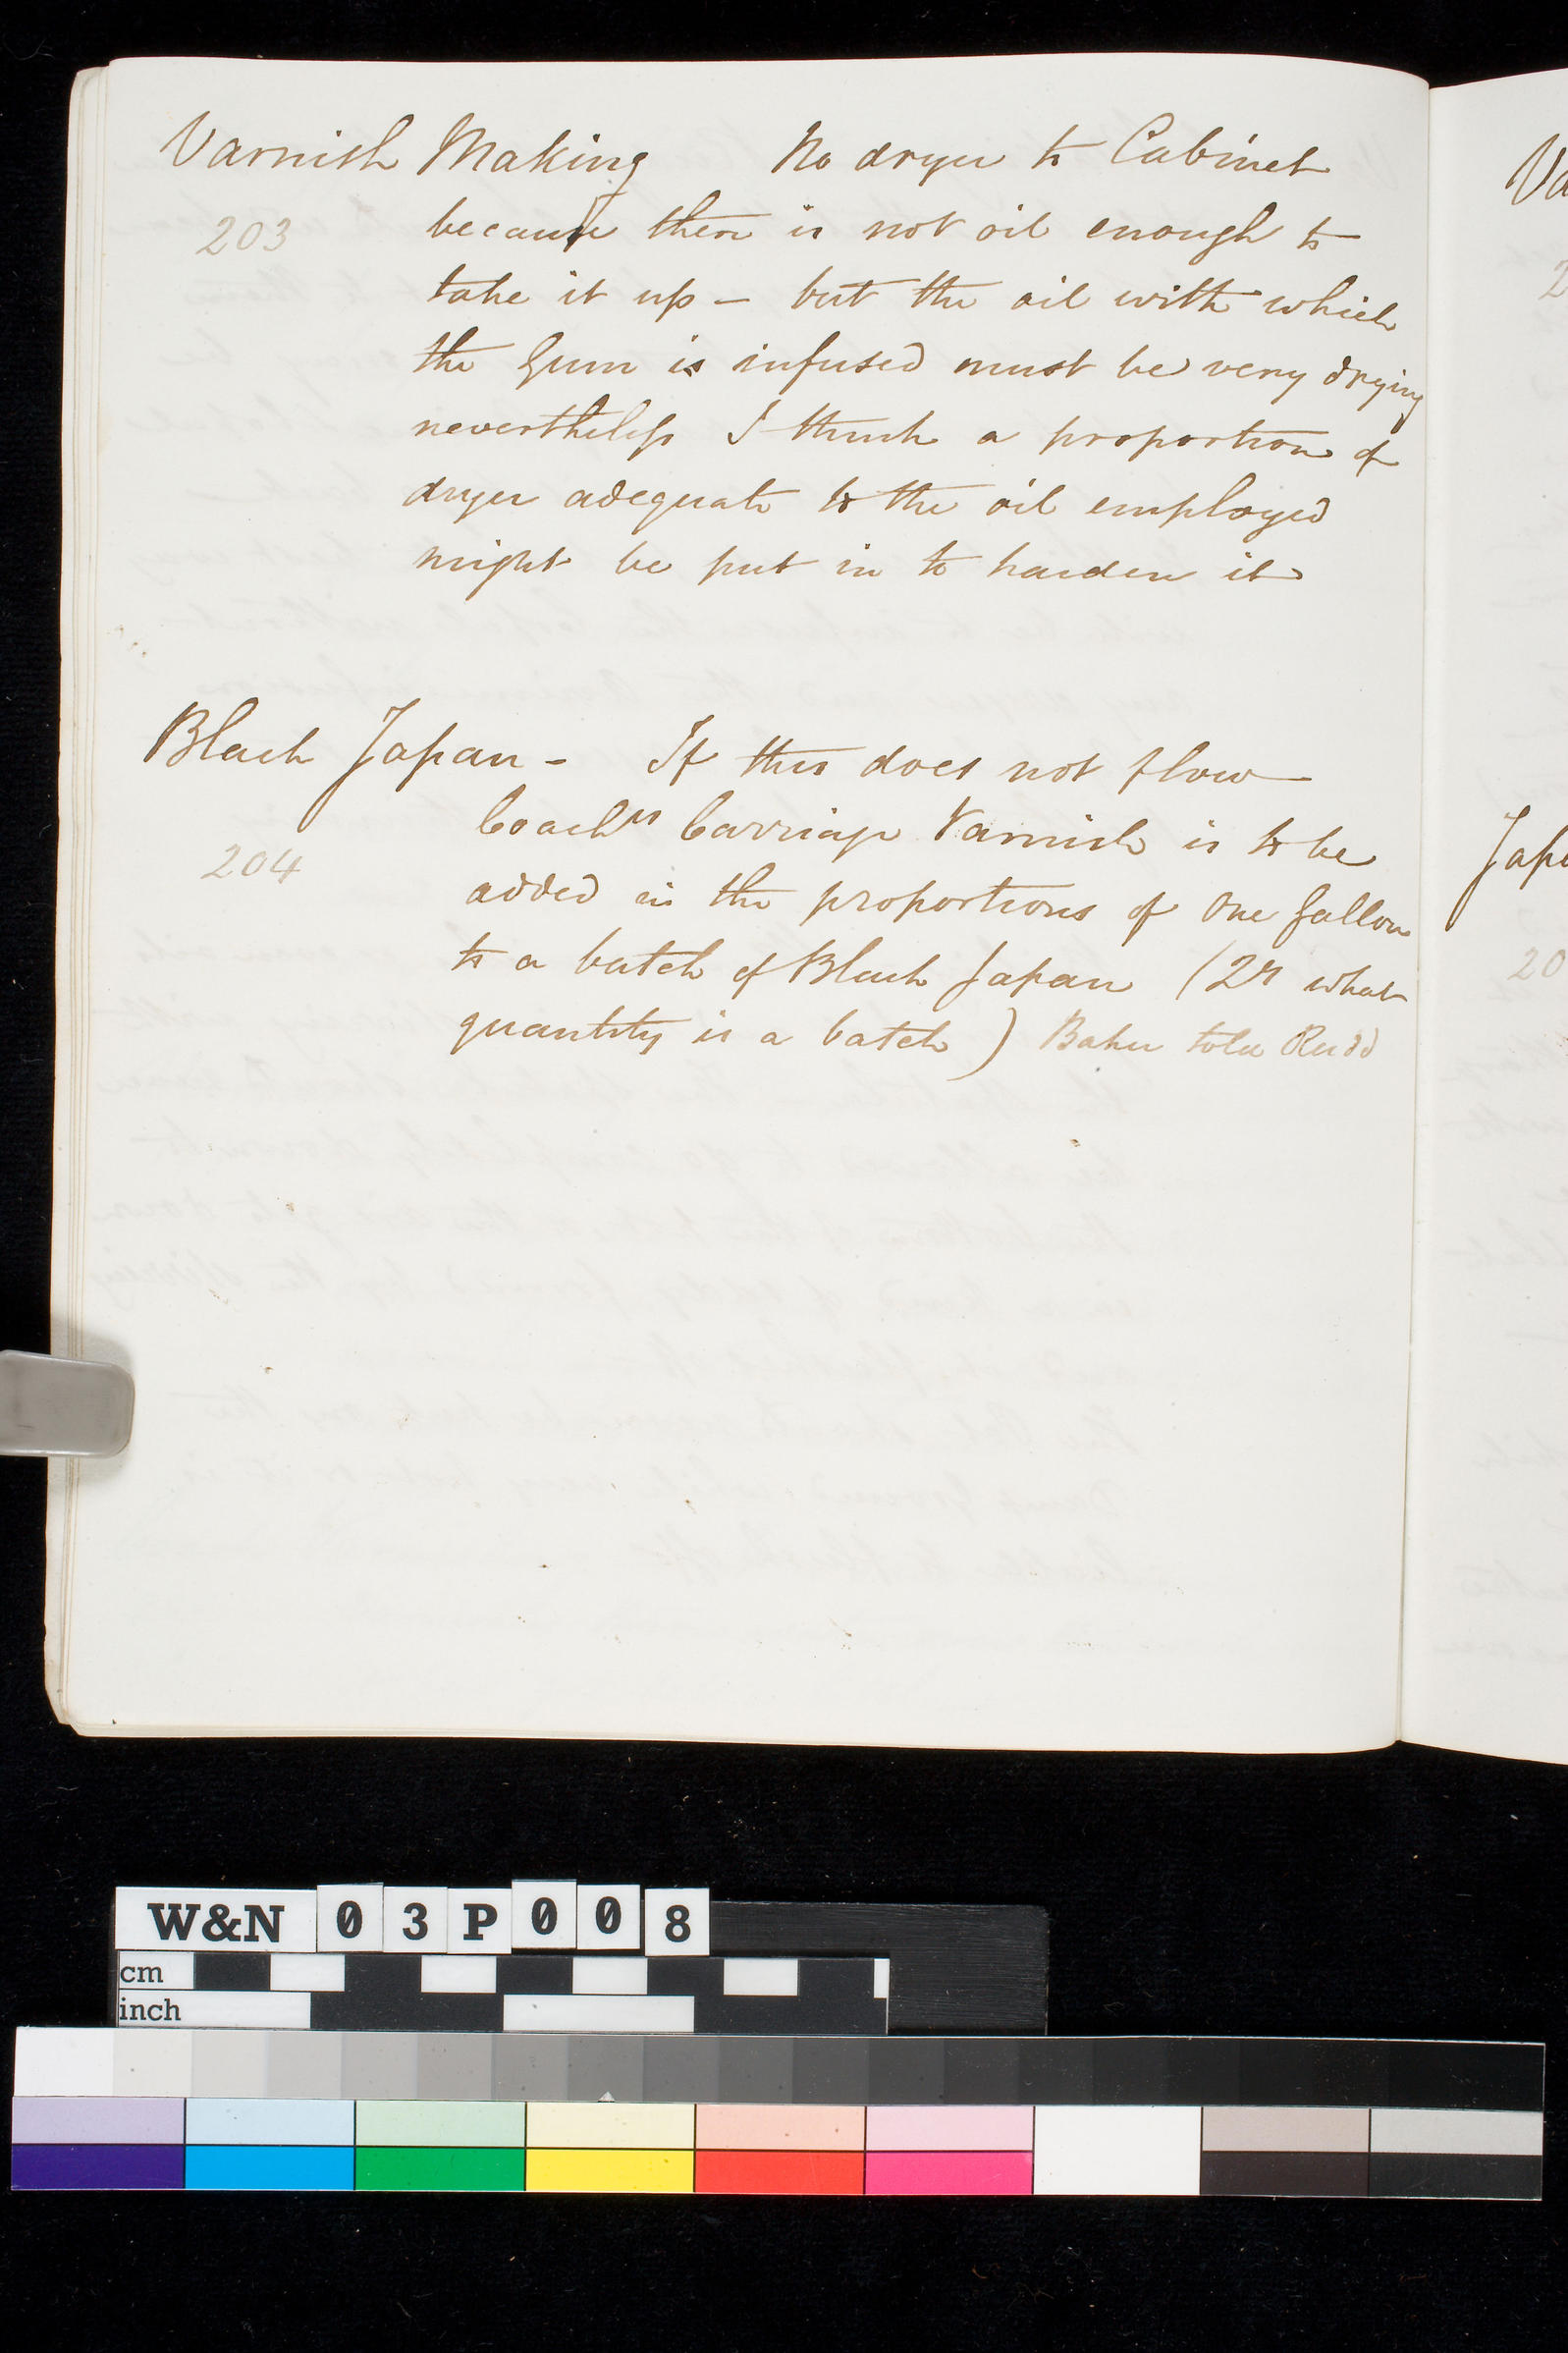 Varnish Making No dryer to Cabinet
203 because there is not oil enough to
take it up – but the oil with which
the Gum is infused must be very drying
nevertheless I think a proportion of
dryer adequate to the oil employed
might be put in to harden it
Black Japan - If this does not flow
Coachrs Carriage Varnish is to be
204 added in the proportions of One Gallon
to a batch of Black Japan (Qr what
quantity is a batch) Baker told Rudd
Va
2
Japa
20
W&N 03P008
cm
inch